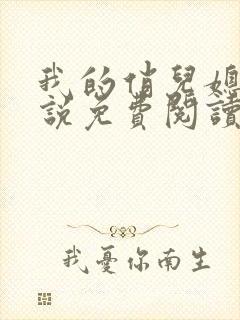 我的俏兒媳
說免費閱讀
我憂你南生